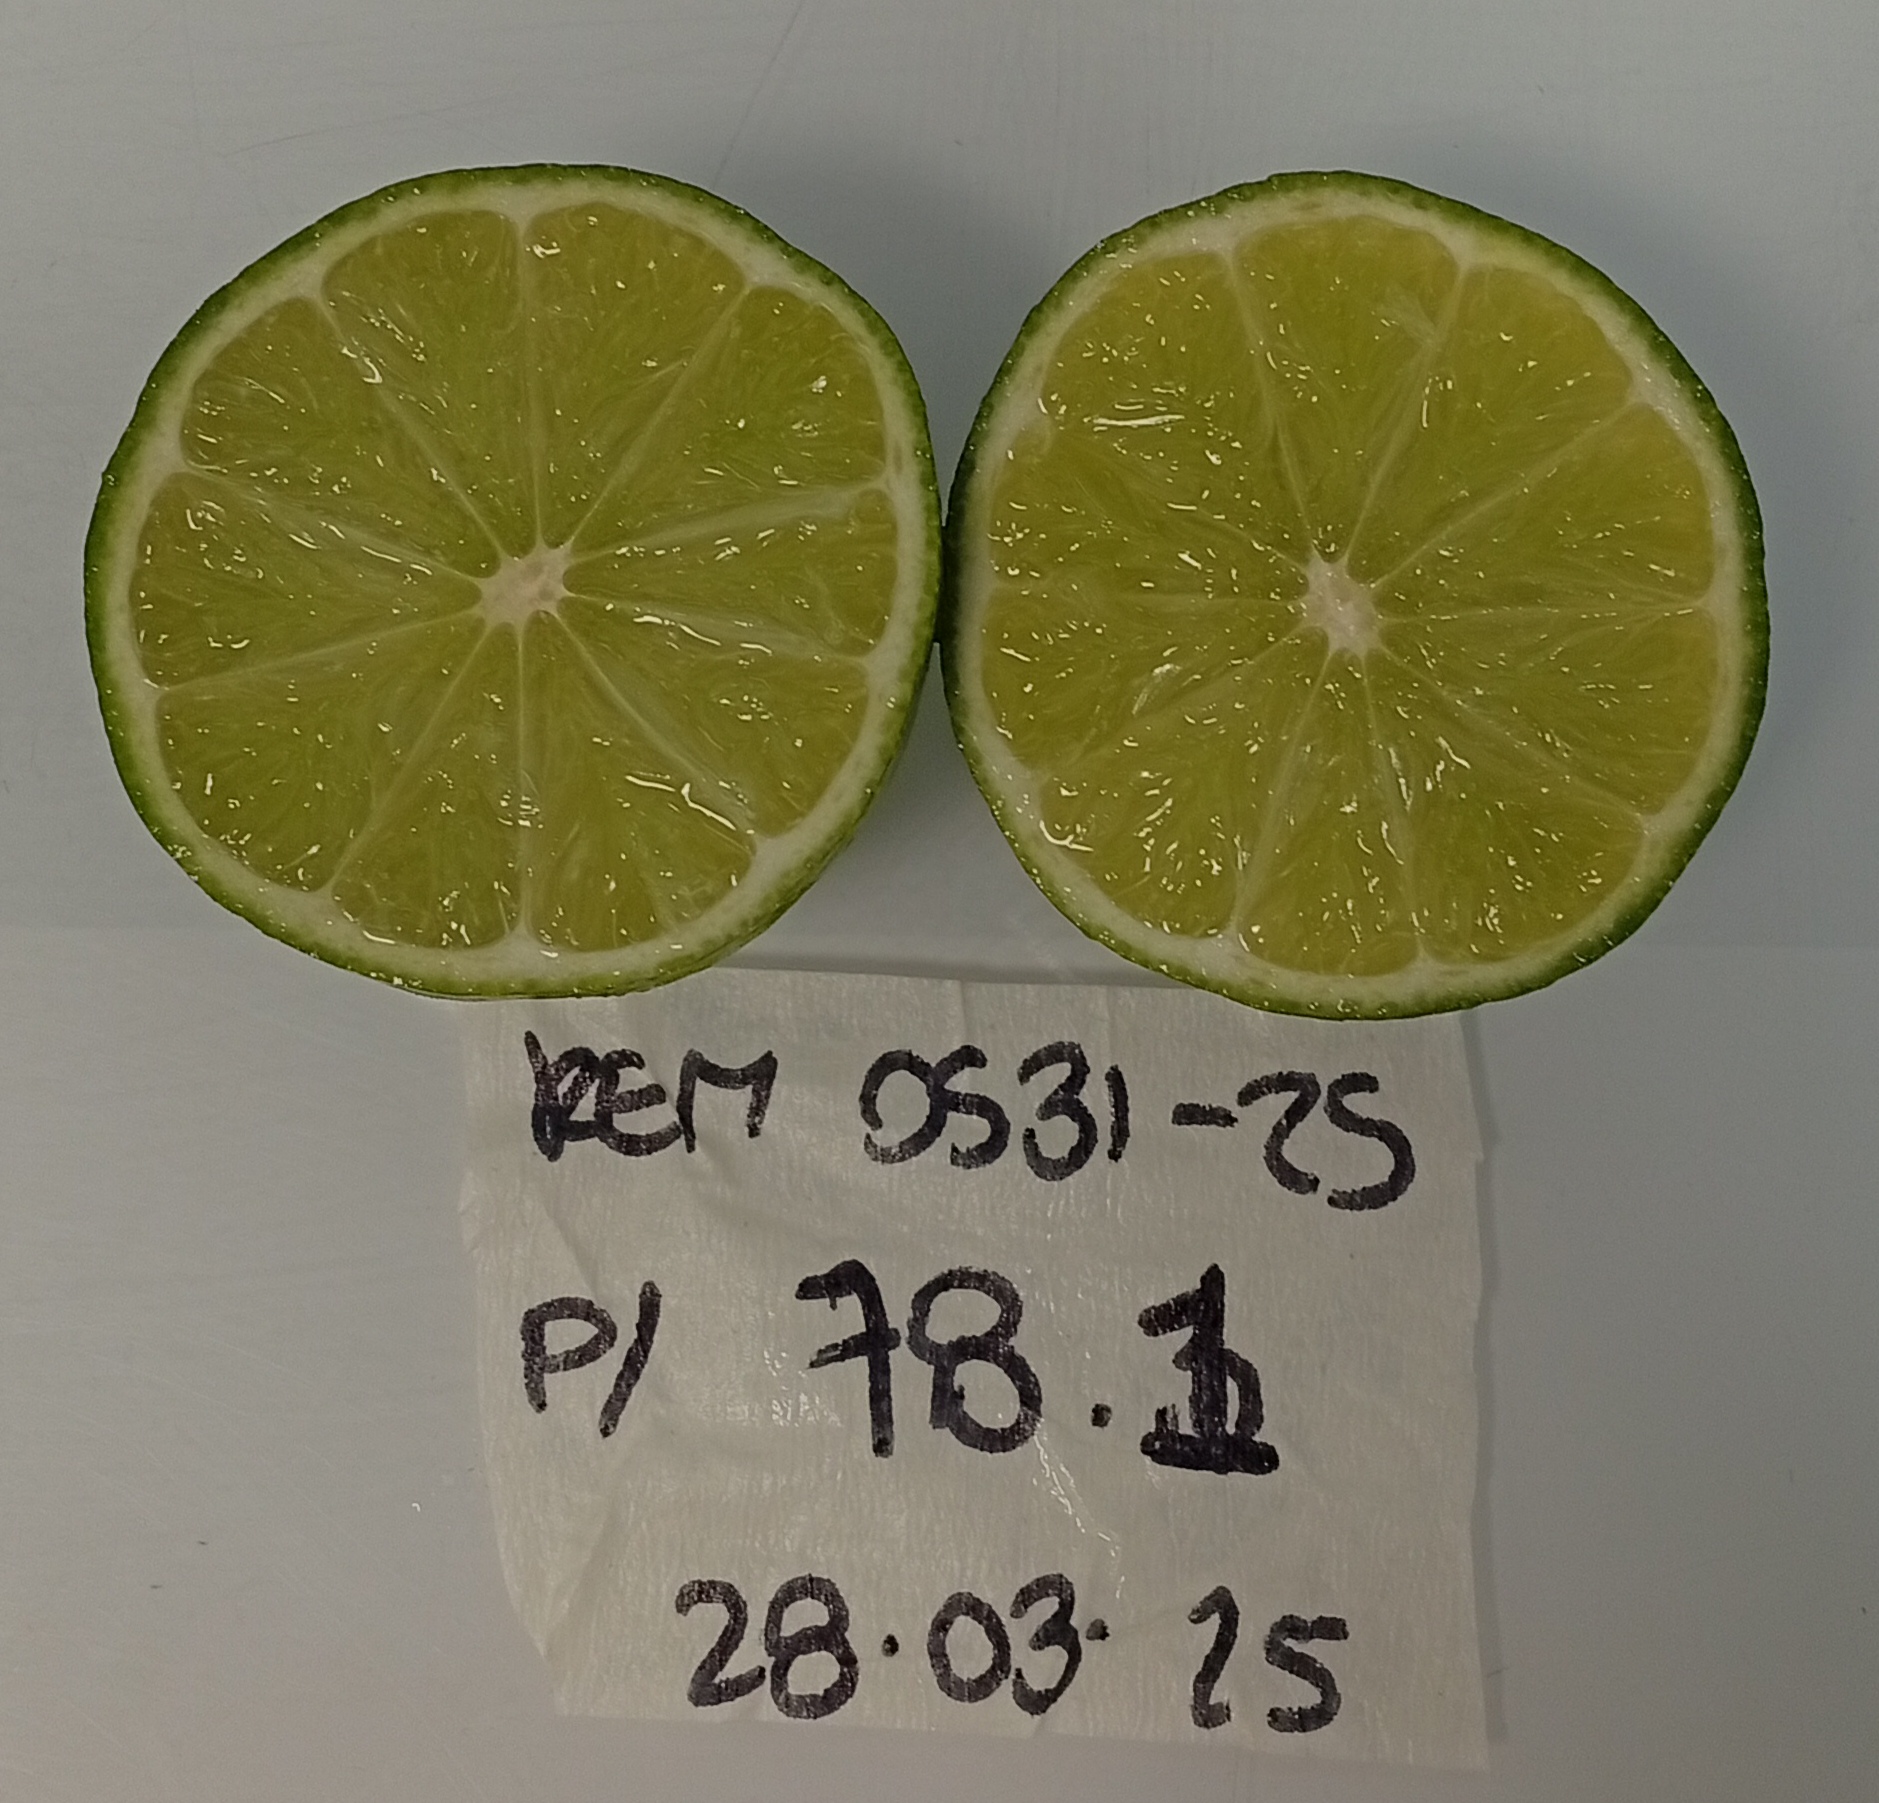 REM 0531-25
P/ 78.1
28.03.25